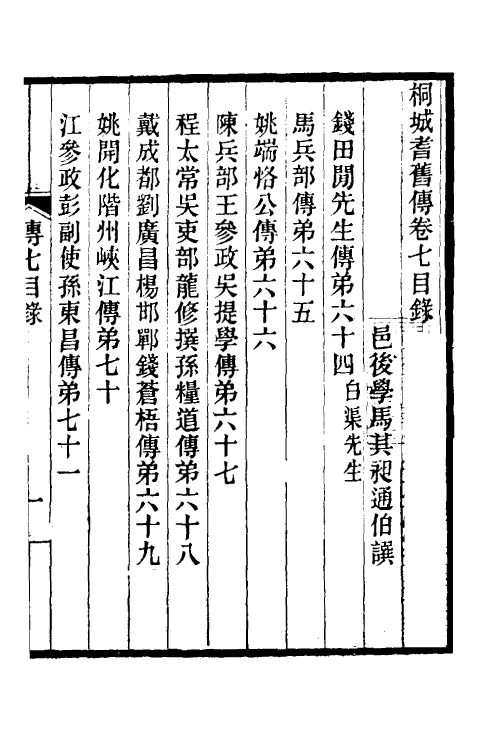 桐城耆舊傳卷七目錄
邑後學馬其昶通伯譔
錢田閒先生傳弟六十四 白渠先生
馬兵部傳弟六十五
姚端恪公傳弟六十六
陳兵部王參政吳提學傳弟六十七
程太常吳吏部龍修撰孫糧道傳弟六十八
戴成都劉廣昌楊邯鄲錢蒼梧傳弟六十九
姚開化階州峽江傳弟七十
江參政彭副使孫東昌傳弟七十一
傳七目錄
一